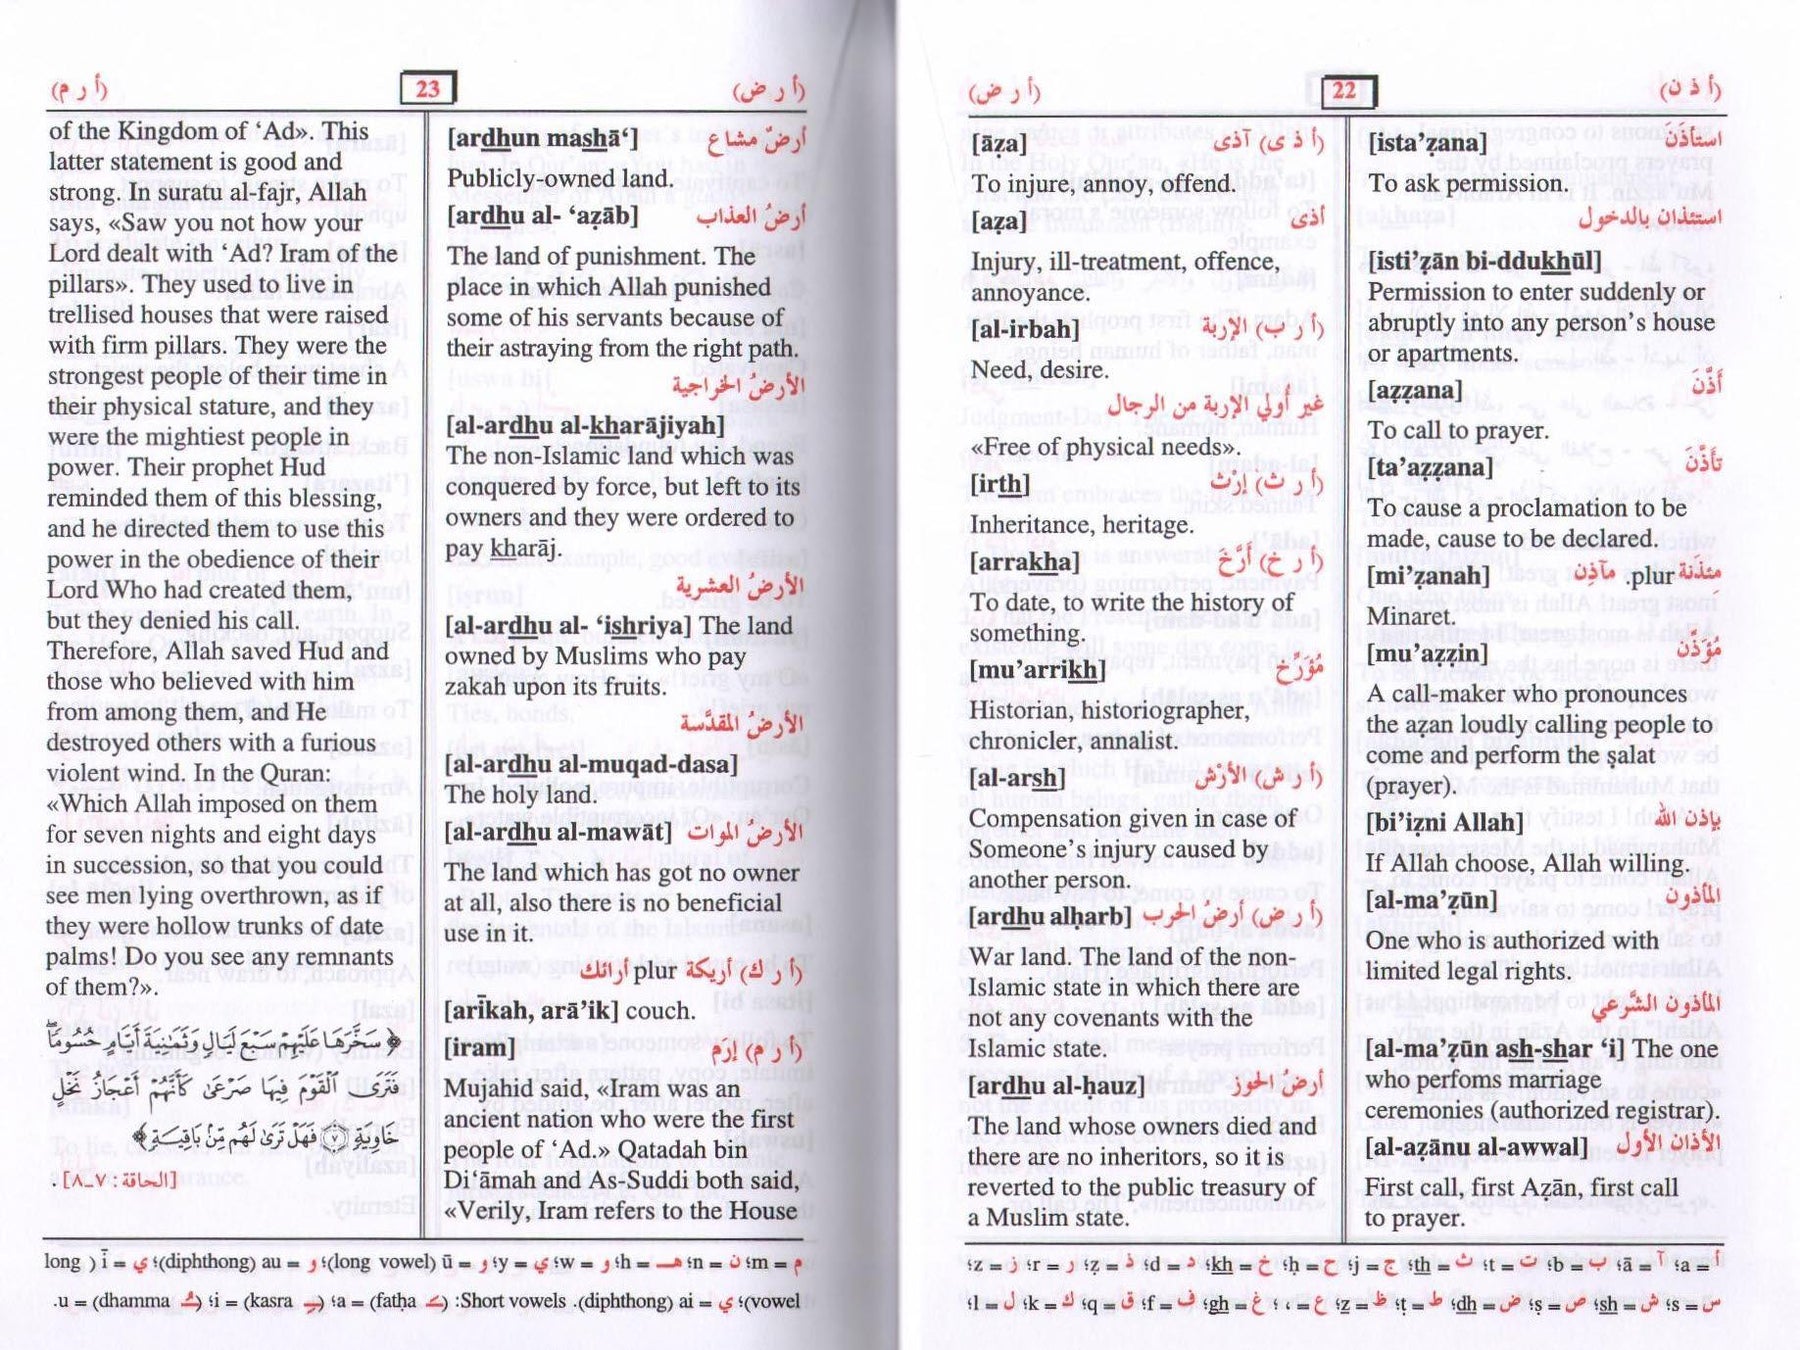 (أ ذ ن)
22
(أ ر ض)
[ista’ẓana] استَأذَنَ
To ask permission.
استئذان بالدخول
[isti’ẓān bi-ddukhūl]
Permission to enter suddenly or
abruptly into any person’s house
or apartments.
[aẓẓana] أَذَّنَ
To call to prayer.
[ta’aẓẓana] تأذَّنَ
To cause a proclamation to be
made, cause to be declared.
[mi’ẓanah] مئذنة plur. مآذن
Minaret.
[mu’aẓẓin] مُؤَذِّن
A call-maker who pronounces
the aẓan loudly calling people to
come and perform the ṣalat
(prayer).
[bi’iẓni Allah] بإذن الله
If Allah choose, Allah willing.
[al-ma’ẓūn] المأذون
One who is authorized with
limited legal rights.
المأذون الشَّرعي
[al-ma’ẓūn ash-shar ‘i] The one
who perfoms marriage
ceremonies (authorized registrar).
[al-aẓānu al-awwal] الأذان الأول
First call, first Aẓān, first call
to prayer.
[āza] (أ ذ ى) آذى
To injure, annoy, offend.
[aẓa] أذى
Injury, ill-treatment, offence,
annoyance.
[al-irbah] (أ ر ب) الإربة
Need, desire.
غير أولي الإربة من الرجال
«Free of physical needs».
[irth] (أ ر ث) إرث
Inheritance, heritage.
[arrakha] (أ ر خ) أَرَّخَ
To date, to write the history of
something.
[mu’arrikh] مُؤَرِّخ
Historian, historiographer,
chronicler, annalist.
[al-arsh] (أ ر ش) الأرْش
Compensation given in case of
Someone’s injury caused by
another person.
[ardhu alḥarb] (أ ر ض) أرضُ الحرب
War land. The land of the non-
Islamic state in which there are
not any covenants with the
Islamic state.
[ardhu al-ḥauz] أرضُ الحوز
The land whose owners died and
there are no inheritors, so it is
reverted to the public treasury of
a Muslim state.
أ = a؛ آ = ā؛ ب = b؛ ت = t؛ ث = th؛ ج = j؛ ح = ḥ؛ خ = kh؛ د = d؛ ذ = ẓ؛ ر = r؛ ز = z؛
س = s؛ ش = sh؛ ص = ṣ؛ ض = dh؛ ط = ṭ؛ ظ = z؛ ع = ‘؛ غ = gh؛ ف = f؛ ق = q؛ ك = k؛ ل = l؛
(أ ر ض)
23
(أ ر م)
[ardhun mashā‘] أرضٌ مشاع
Publicly-owned land.
[ardhu al- ‘aẓāb] أرضُ العذاب
The land of punishment. The
place in which Allah punished
some of his servants because of
their astraying from the right path.
الأرضُ الخراجية
[al-ardhu al-kharājiyah]
The non-Islamic land which was
conquered by force, but left to its
owners and they were ordered to
pay kharāj.
الأرضُ العشرية
[al-ardhu al- ‘ishriya] The land
owned by Muslims who pay
zakah upon its fruits.
الأرضُ المقدَّسة
[al-ardhu al-muqad-dasa]
The holy land.
[al-ardhu al-mawāt] الأرضُ الموات
The land which has got no owner
at all, also there is no beneficial
use in it.
(أ ر ك) أريكة plur أرائك
[arīkah, arā’ik] couch.
[iram] (أ ر م) إرم
Mujahid said, «Iram was an
ancient nation who were the first
people of ‘Ad.» Qatadah bin
Di‘āmah and As-Suddi both said,
«Verily, Iram refers to the House
of the Kingdom of ‘Ad». This
latter statement is good and
strong. In suratu al-fajr, Allah
says, «Saw you not how your
Lord dealt with ‘Ad? Iram of the
pillars». They used to live in
trellised houses that were raised
with firm pillars. They were the
strongest people of their time in
their physical stature, and they
were the mightiest people in
power. Their prophet Hud
reminded them of this blessing,
and he directed them to use this
power in the obedience of their
Lord Who had created them,
but they denied his call.
Therefore, Allah saved Hud and
those who believed with him
from among them, and He
destroyed others with a furious
violent wind. In the Quran:
«Which Allah imposed on them
for seven nights and eight days
in succession, so that you could
see men lying overthrown; as if
they were hollow trunks of date
palms! Do you see any remnants
of them?».
﴿ سَخَّرَهَا عَلَيْهِمْ سَبْعَ لَيَالٍ وَثَمَٰنِيَةَ أَيَّامٍ حُسُومًاۖ
فَتَرَى ٱلْقَوْمَ فِيهَا صَرْعَىٰ كَأَنَّهُمْ أَعْجَازُ نَخْلٍ
خَاوِيَةٍ ﴿٧﴾ فَهَلْ تَرَىٰ لَهُم مِّنۢ بَاقِيَةٍ ﴾
[الحاقة: ٧_٨] .
م = m؛ ن = n؛ هـ = h؛ و = w؛ ي = y؛ و = ū (long vowel)؛ و = au (diphthong)؛ ي = ī ( long
vowel)؛ ي = ai (diphthong). Short vowels: (ـَ fatḥa) = a؛ (ـِ kasra) = i؛ (ـُ dhamma) = u.